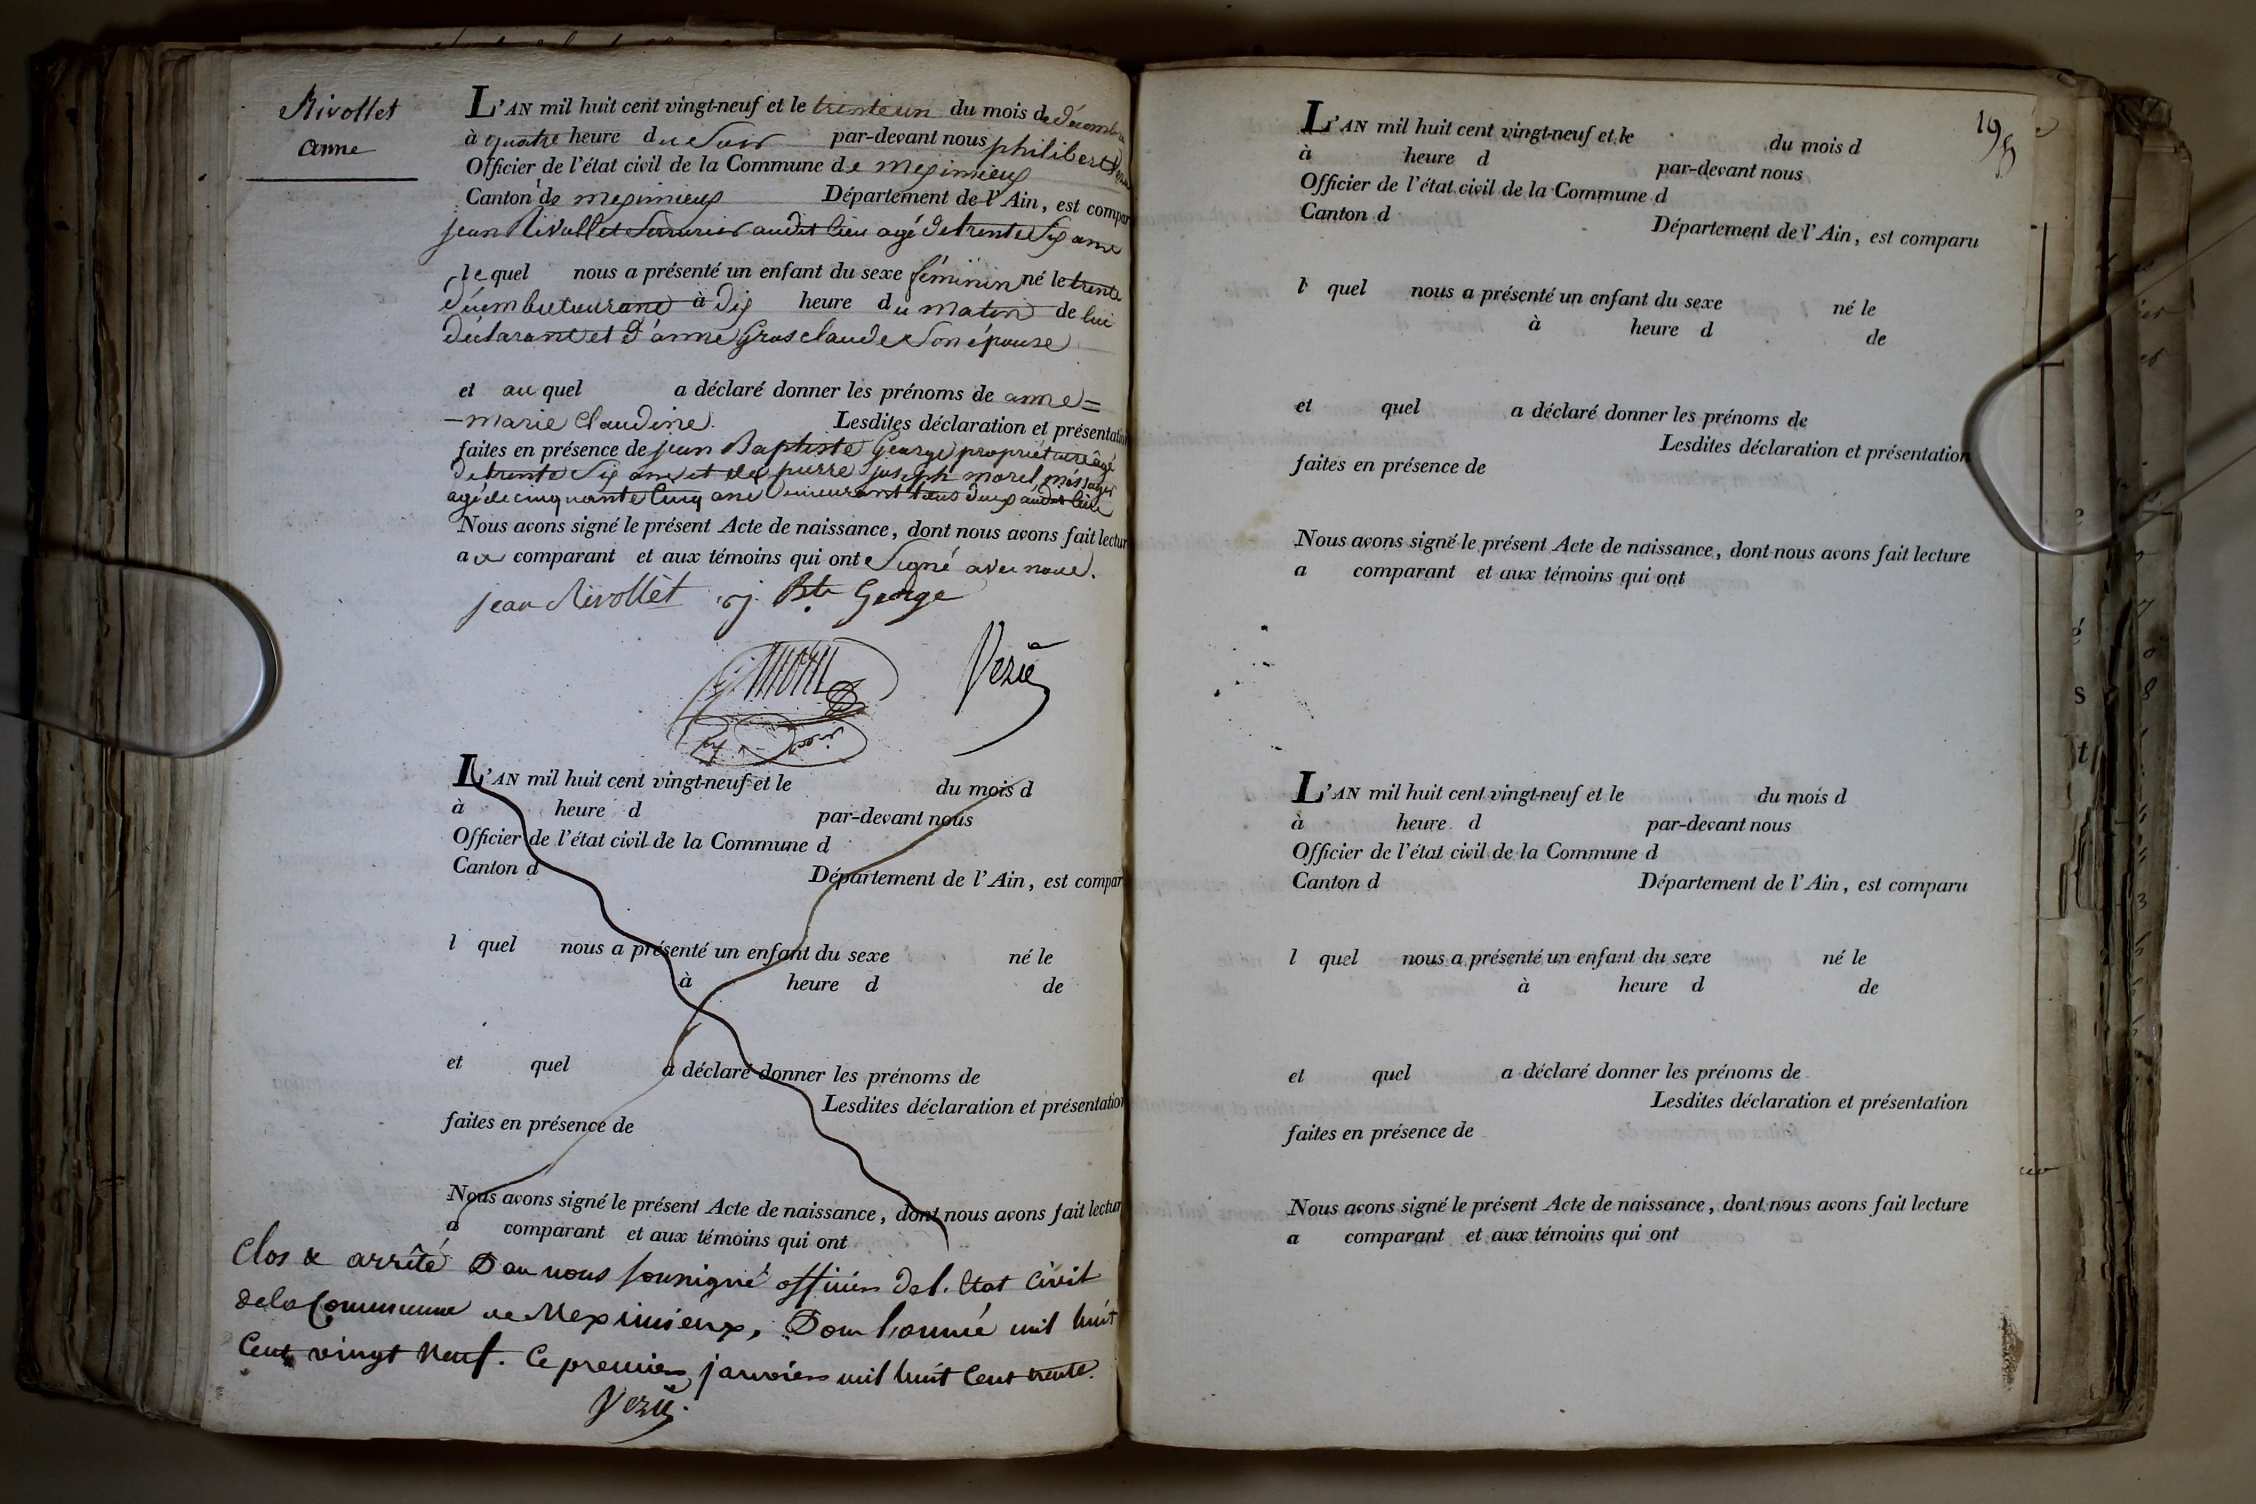 Rivollet
anne
L'AN mil huit cent vingt-neuf et le trente un du mois de décembre
à quatre heure du Soir par-devant nous philibert
Officier de l'état civil de la Commune de meximieux
Canton de meximieux Département de l'Ain, est compar
jean Rivollet Serrurier audit lieu agé de trente Six ans
le quel nous a présenté un enfant du sexe féminin né le trente
décembre courant à dix heure du matin de lui
déclarant et d'anne Gros claude Son épouse
et au quel a déclaré donner les prénoms de anne =
- marie claudine. Lesdites déclaration et présentation
faites en présence de jean Baptiste George propriétaire âgé
de trente Six ans et de pierre joseph morel, méssager
agé de cinquante Cinq ans demeurant tous deux audit lieu
Nous avons signé le présent Acte de naissance, dont nous avons fait lectur
au comparant et aux témoins qui ont Signé avec nous.
jean Rivollet j. Bte George
morel Vezu
L'AN mil huit cent vingt-neuf et le du mois d
à heure d par-devant nous
Officier de l'état civil de la Commune d
Canton d Département de l'Ain, est compar
l quel nous a présenté un enfant du sexe né le
à heure d de
et quel a déclaré donner les prénoms de
Lesdites déclaration et présentation
faites en présence de
Nous avons signé le présent Acte de naissance, dont nous avons fait lectur
a comparant et aux témoins qui ont
Clos & arrêté Par nous soussigné officier de l'Etat Civil
de la Commune de Meximieux, Pour l'année mil huit
Cent vingt Neuf. Ce premier janvier mil huit Cent trente.
Vezu
195
L'AN mil huit cent vingt-neuf et le du mois d
à heure d par-devant nous
Officier de l'état civil de la Commune d
Canton d Département de l'Ain, est comparu
l quel nous a présenté un enfant du sexe né le
à heure d de
et quel a déclaré donner les prénoms de
Lesdites déclaration et présentation
faites en présence de
Nous avons signé le présent Acte de naissance, dont nous avons fait lecture
a comparant et aux témoins qui ont
L'AN mil huit cent vingt-neuf et le du mois d
à heure d par-devant nous
Officier de l'état civil de la Commune d
Canton d Département de l'Ain, est comparu
l quel nous a présenté un enfant du sexe né le
à heure d de
et quel a déclaré donner les prénoms de
Lesdites déclaration et présentation
faites en présence de
Nous avons signé le présent Acte de naissance, dont nous avons fait lecture
a comparant et aux témoins qui ont